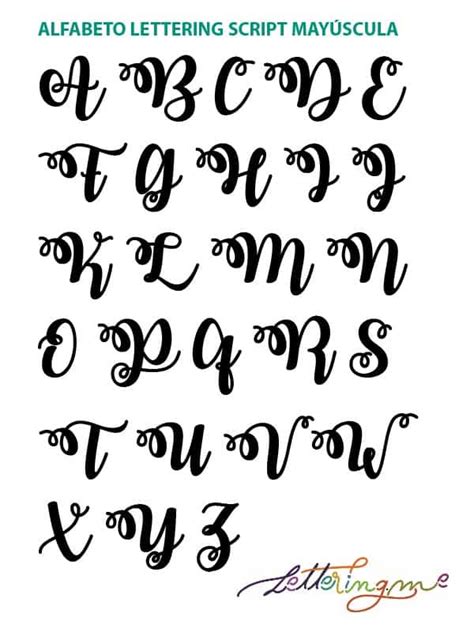 ALFABETO LETTERING SCRIPT MAYÚSCULA
A B C D E
F G H I J
K L M N
O P Q R S
T U V W
X Y Z
Lettering.me